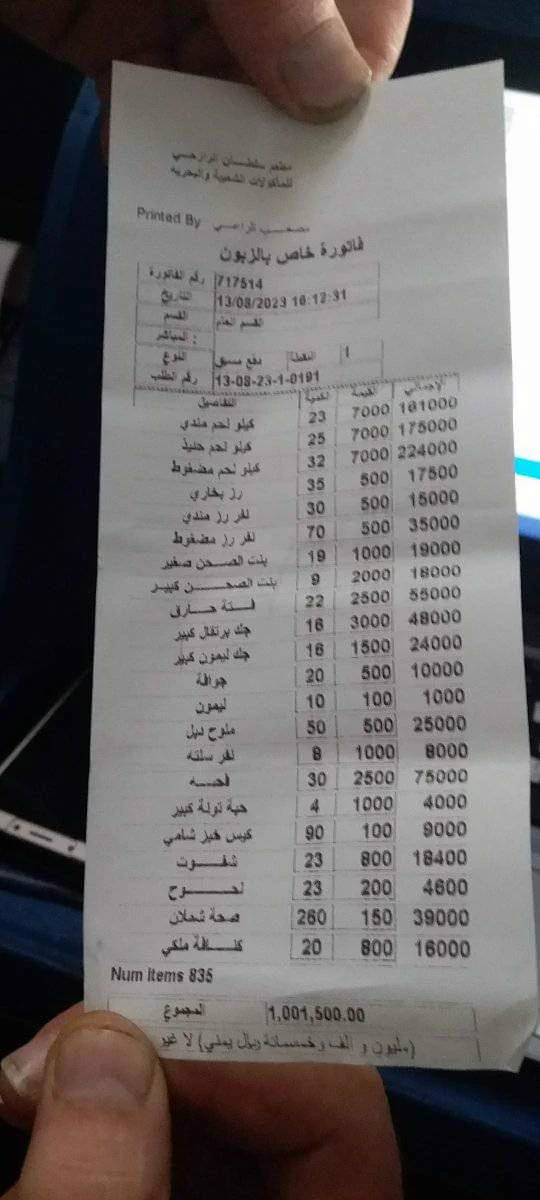 مطعم سلطان الرازحي
للمأكولات الشعبية والبحرية
Printed By مصعب الراعي
فاتورة خاص بالزبون
رقم الفاتورة 717514
التاريخ 13/08/2023 16:12:31
القسم القسم العام
المباشر :
النوع دفع مسبق النقطة 1
رقم الطلب 13-08-23-1-0191
التفاصيل الكمية القيمة الإجمالي
كيلو لحم مندي 23 7000 161000
كيلو لحم حنيذ 25 7000 175000
كيلو لحم مضغوط 32 7000 224000
رز بخاري 35 500 17500
نفر رز مندي 30 500 15000
نفر رز مضغوط 70 500 35000
بنت الصحن صغير 19 1000 19000
بنت الصحن كبير 9 2000 18000
فتة حارق 22 2500 55000
جك برتقال كبير 16 3000 48000
جك ليمون كبير 16 1500 24000
جوافة 20 500 10000
ليمون 10 100 1000
ملوح دبل 50 500 25000
نفر سلته 8 1000 8000
فحسه 30 2500 75000
حبة تونة كبير 4 1000 4000
كيس خبز شامي 90 100 9000
شفوت 23 800 18400
لحوح 23 200 4600
صحة شملان 260 150 39000
كنافة ملكي 20 800 16000
Num Items 835
المجموع 1,001,500.00
(مليون و الف وخمسمائة ريال يمني) لا غير